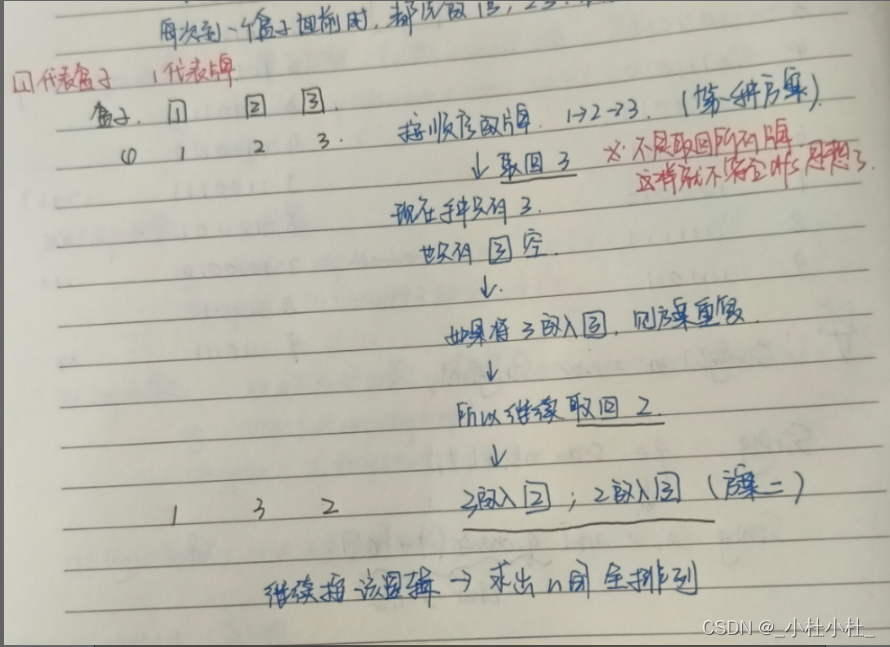 每次到一个盒子面前时，都先放1号，2号
□代表盒子 1代表牌
盒子. 1 2 3
φ 1 2 3. 按顺序放牌. 1→2→3. (第一种方案).
↓ 取回3 ※.不是取回所有牌
这样就不符合dfs思想了.
现在手中只有3.
也只有3空.
↓.
如果将3放入3，则方案重复.
↓
所以继续取回2.
↓
1 3 2 3放入2；2放入3 (方案二)
继续按该逻辑→求出n的全排列
CSDN @_小杜小杜_